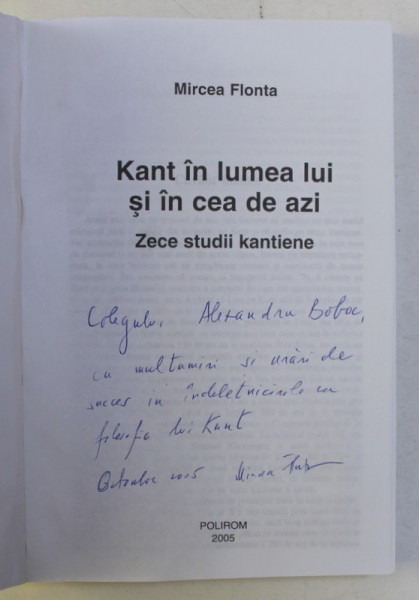 Mircea Flonta
Kant în lumea lui
şi în cea de azi
Zece studii kantiene
Colegului Alexandru Boboc,
cu mulţumiri şi urări de
succes în îndeletnicirile cu
filosofia lui Kant
Octombrie 2005 Mircea Flonta
POLIROM
2005